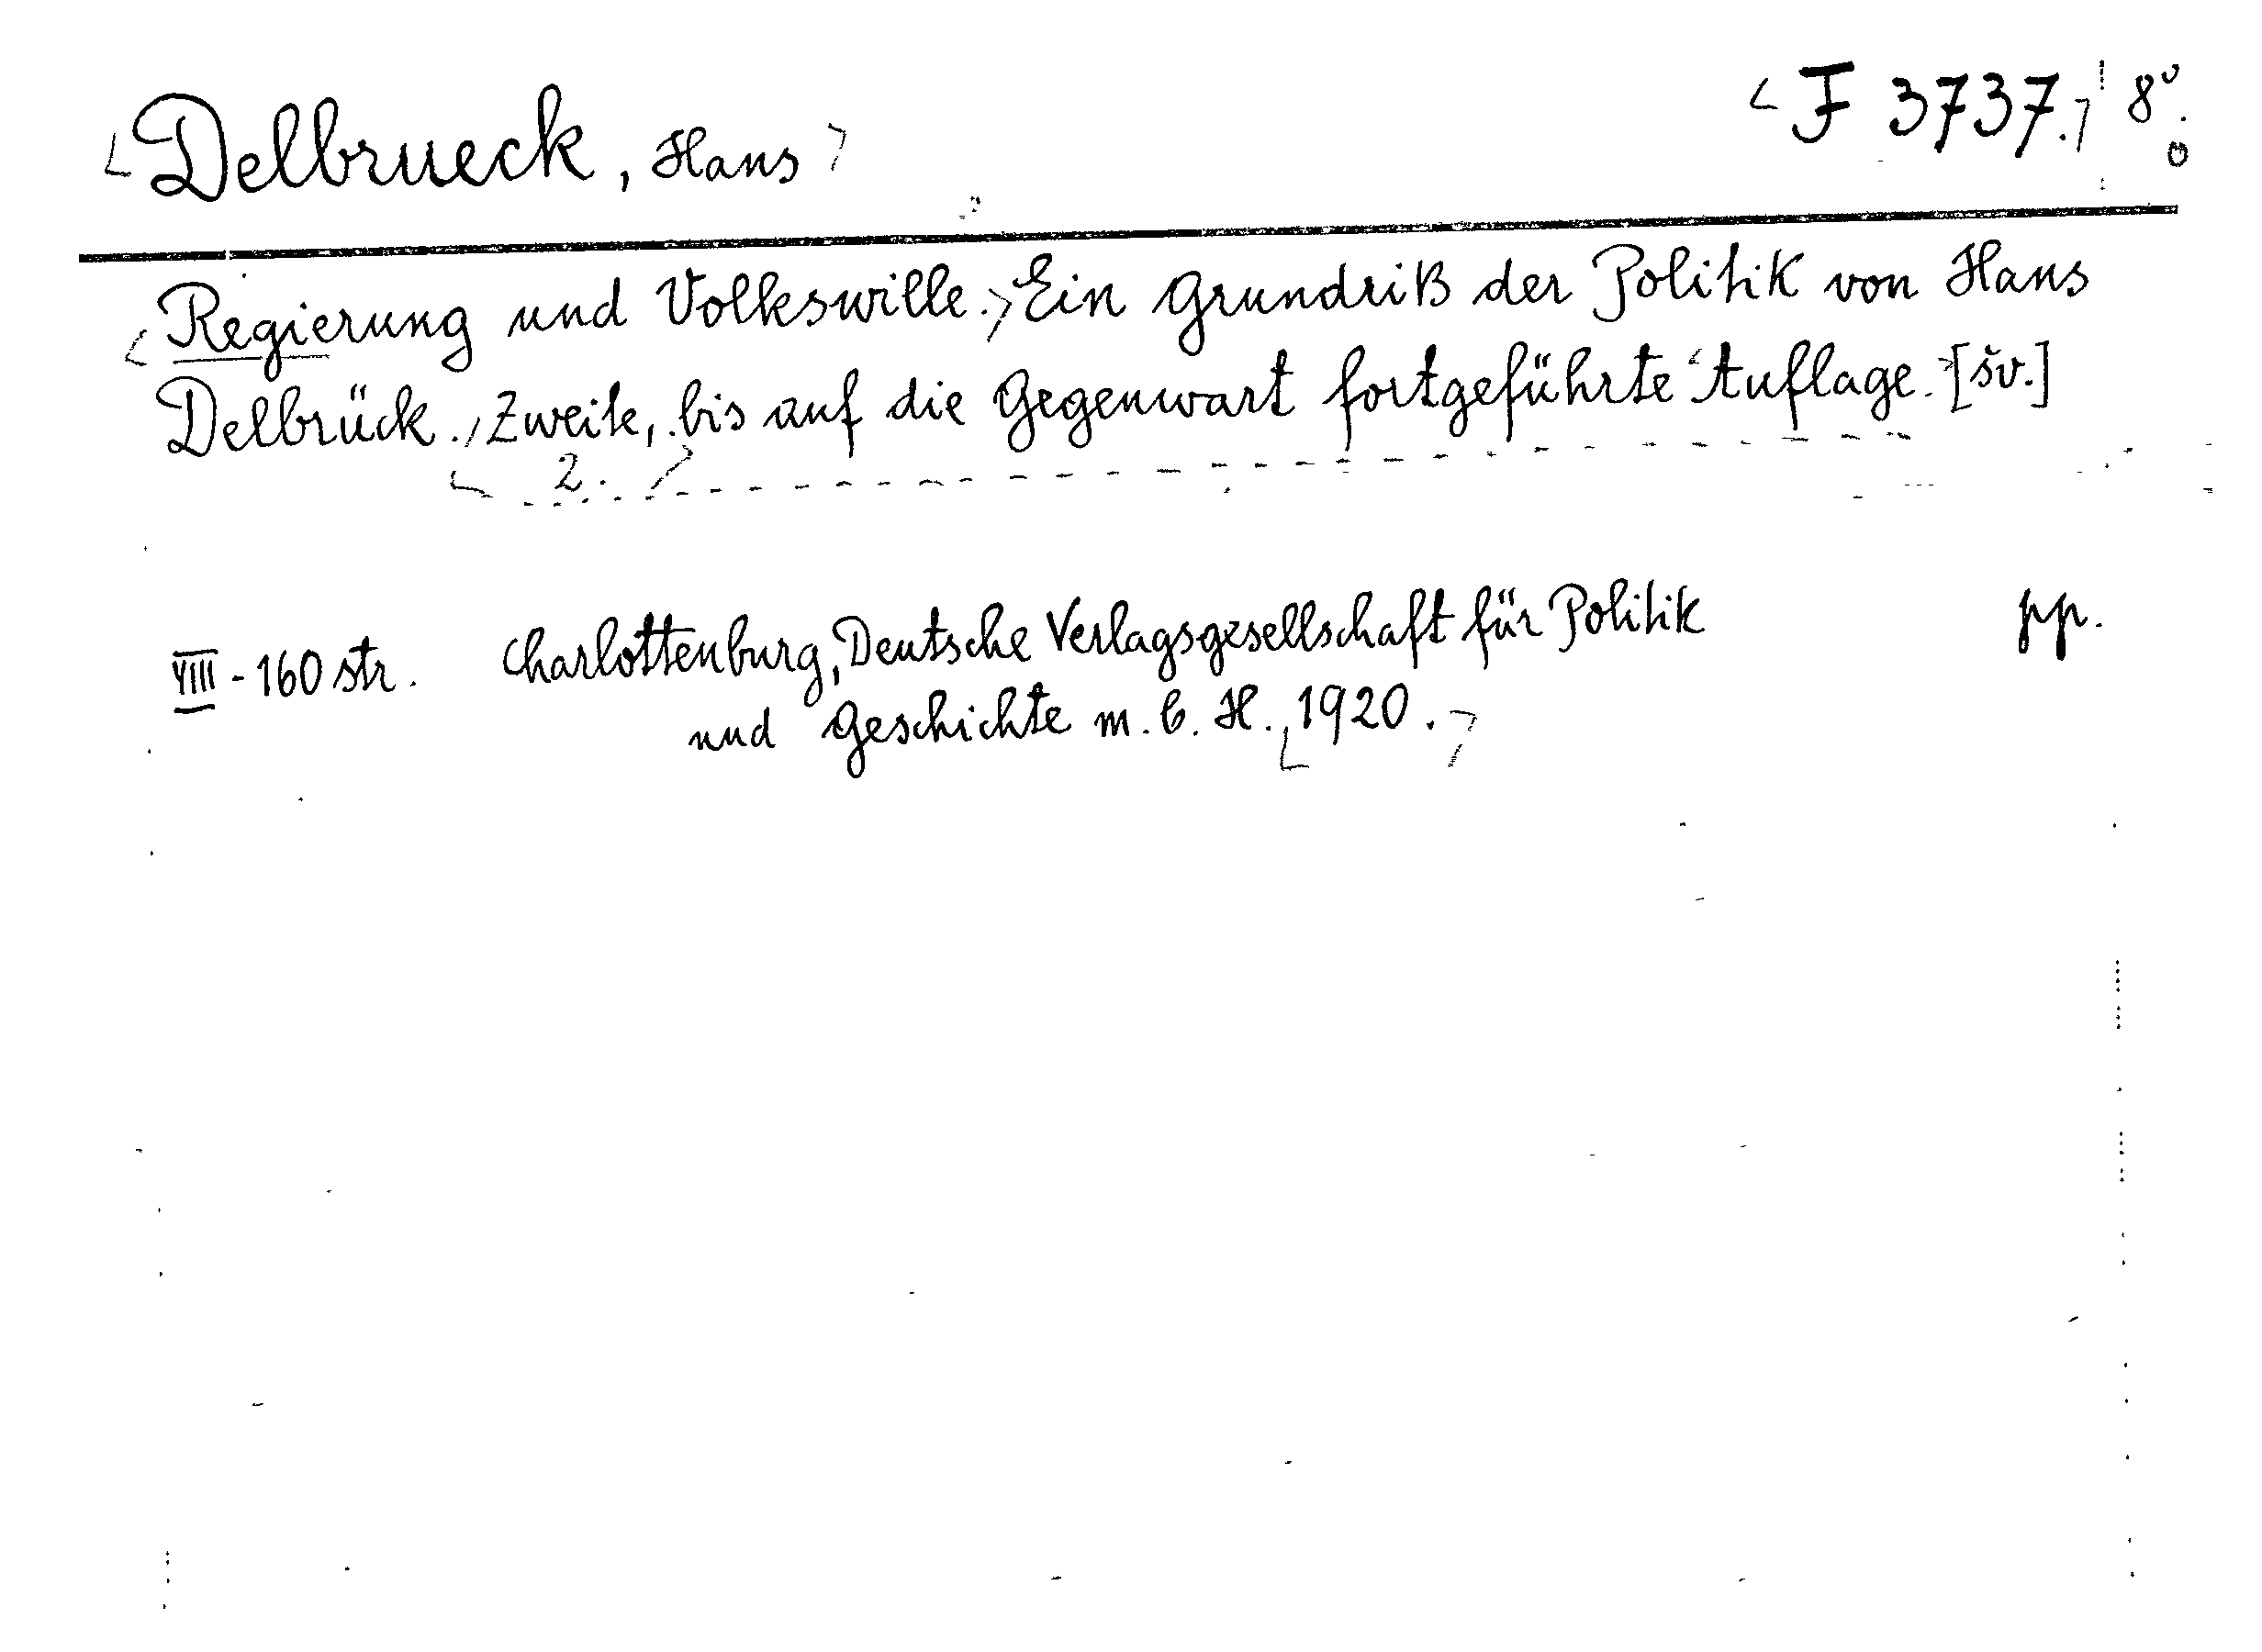 Delbrueck, Hans
F 3737. 8°.
Regierung und Volkswille. Ein Grundriß der Politik von Hans
Delbrück. Zweite, bis auf die Gegenwart fortgeführte Auflage. [šv.]
2.
VIII - 160 str. Charlottenburg, Deutsche Verlagsgesellschaft für Politik pp.
und Geschichte m. b. H., 1920.